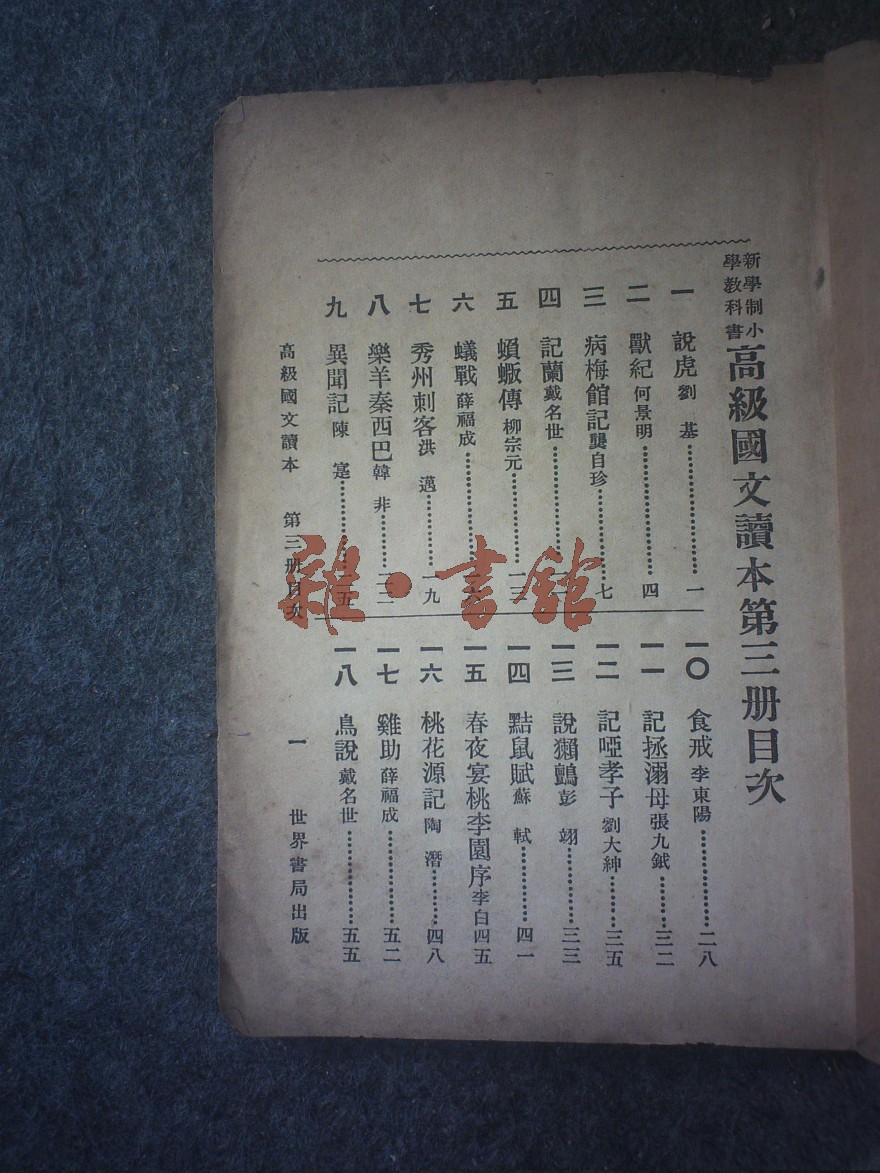 新學制小
學教科書
高級國文讀本第三册目次
一 說虎 劉 基 一
二 獸紀 何景明 四
三 病梅館記 龔自珍 七
四 記蘭 戴名世
五 蝜蝂傳 柳宗元 一三
六 蟻戰 薛福成 一六
七 秀州刺客 洪 邁 一九
八 樂羊秦西巴 韓 非 二二
九 異聞記 陳 寔 二五
一〇 食戒 李東陽 二八
一一 記拯溺母 張九鉞 三二
一二 記啞孝子 劉大紳 三五
一三 說獺鷀 彭 翊 三三
一四 黠鼠賦 蘇 軾 四一
一五 春夜宴桃李園序 李白 四五
一六 桃花源記 陶 潛 四八
一七 雞助 薛福成 五二
一八 鳥說 戴名世 五五
高級國文讀本 第三册目次 一 世界書局出版
雜·書館